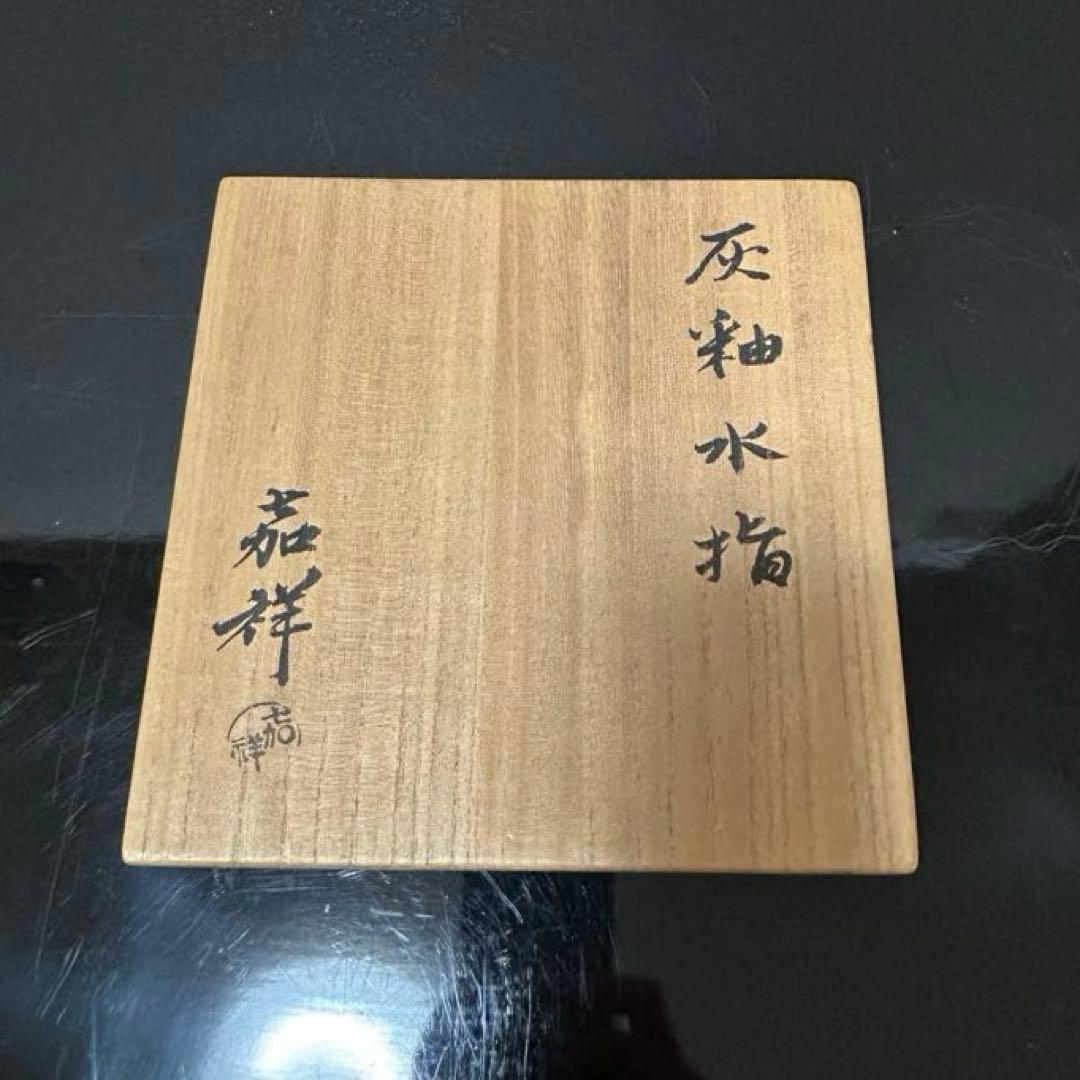 灰釉水指
嘉祥
嘉祥